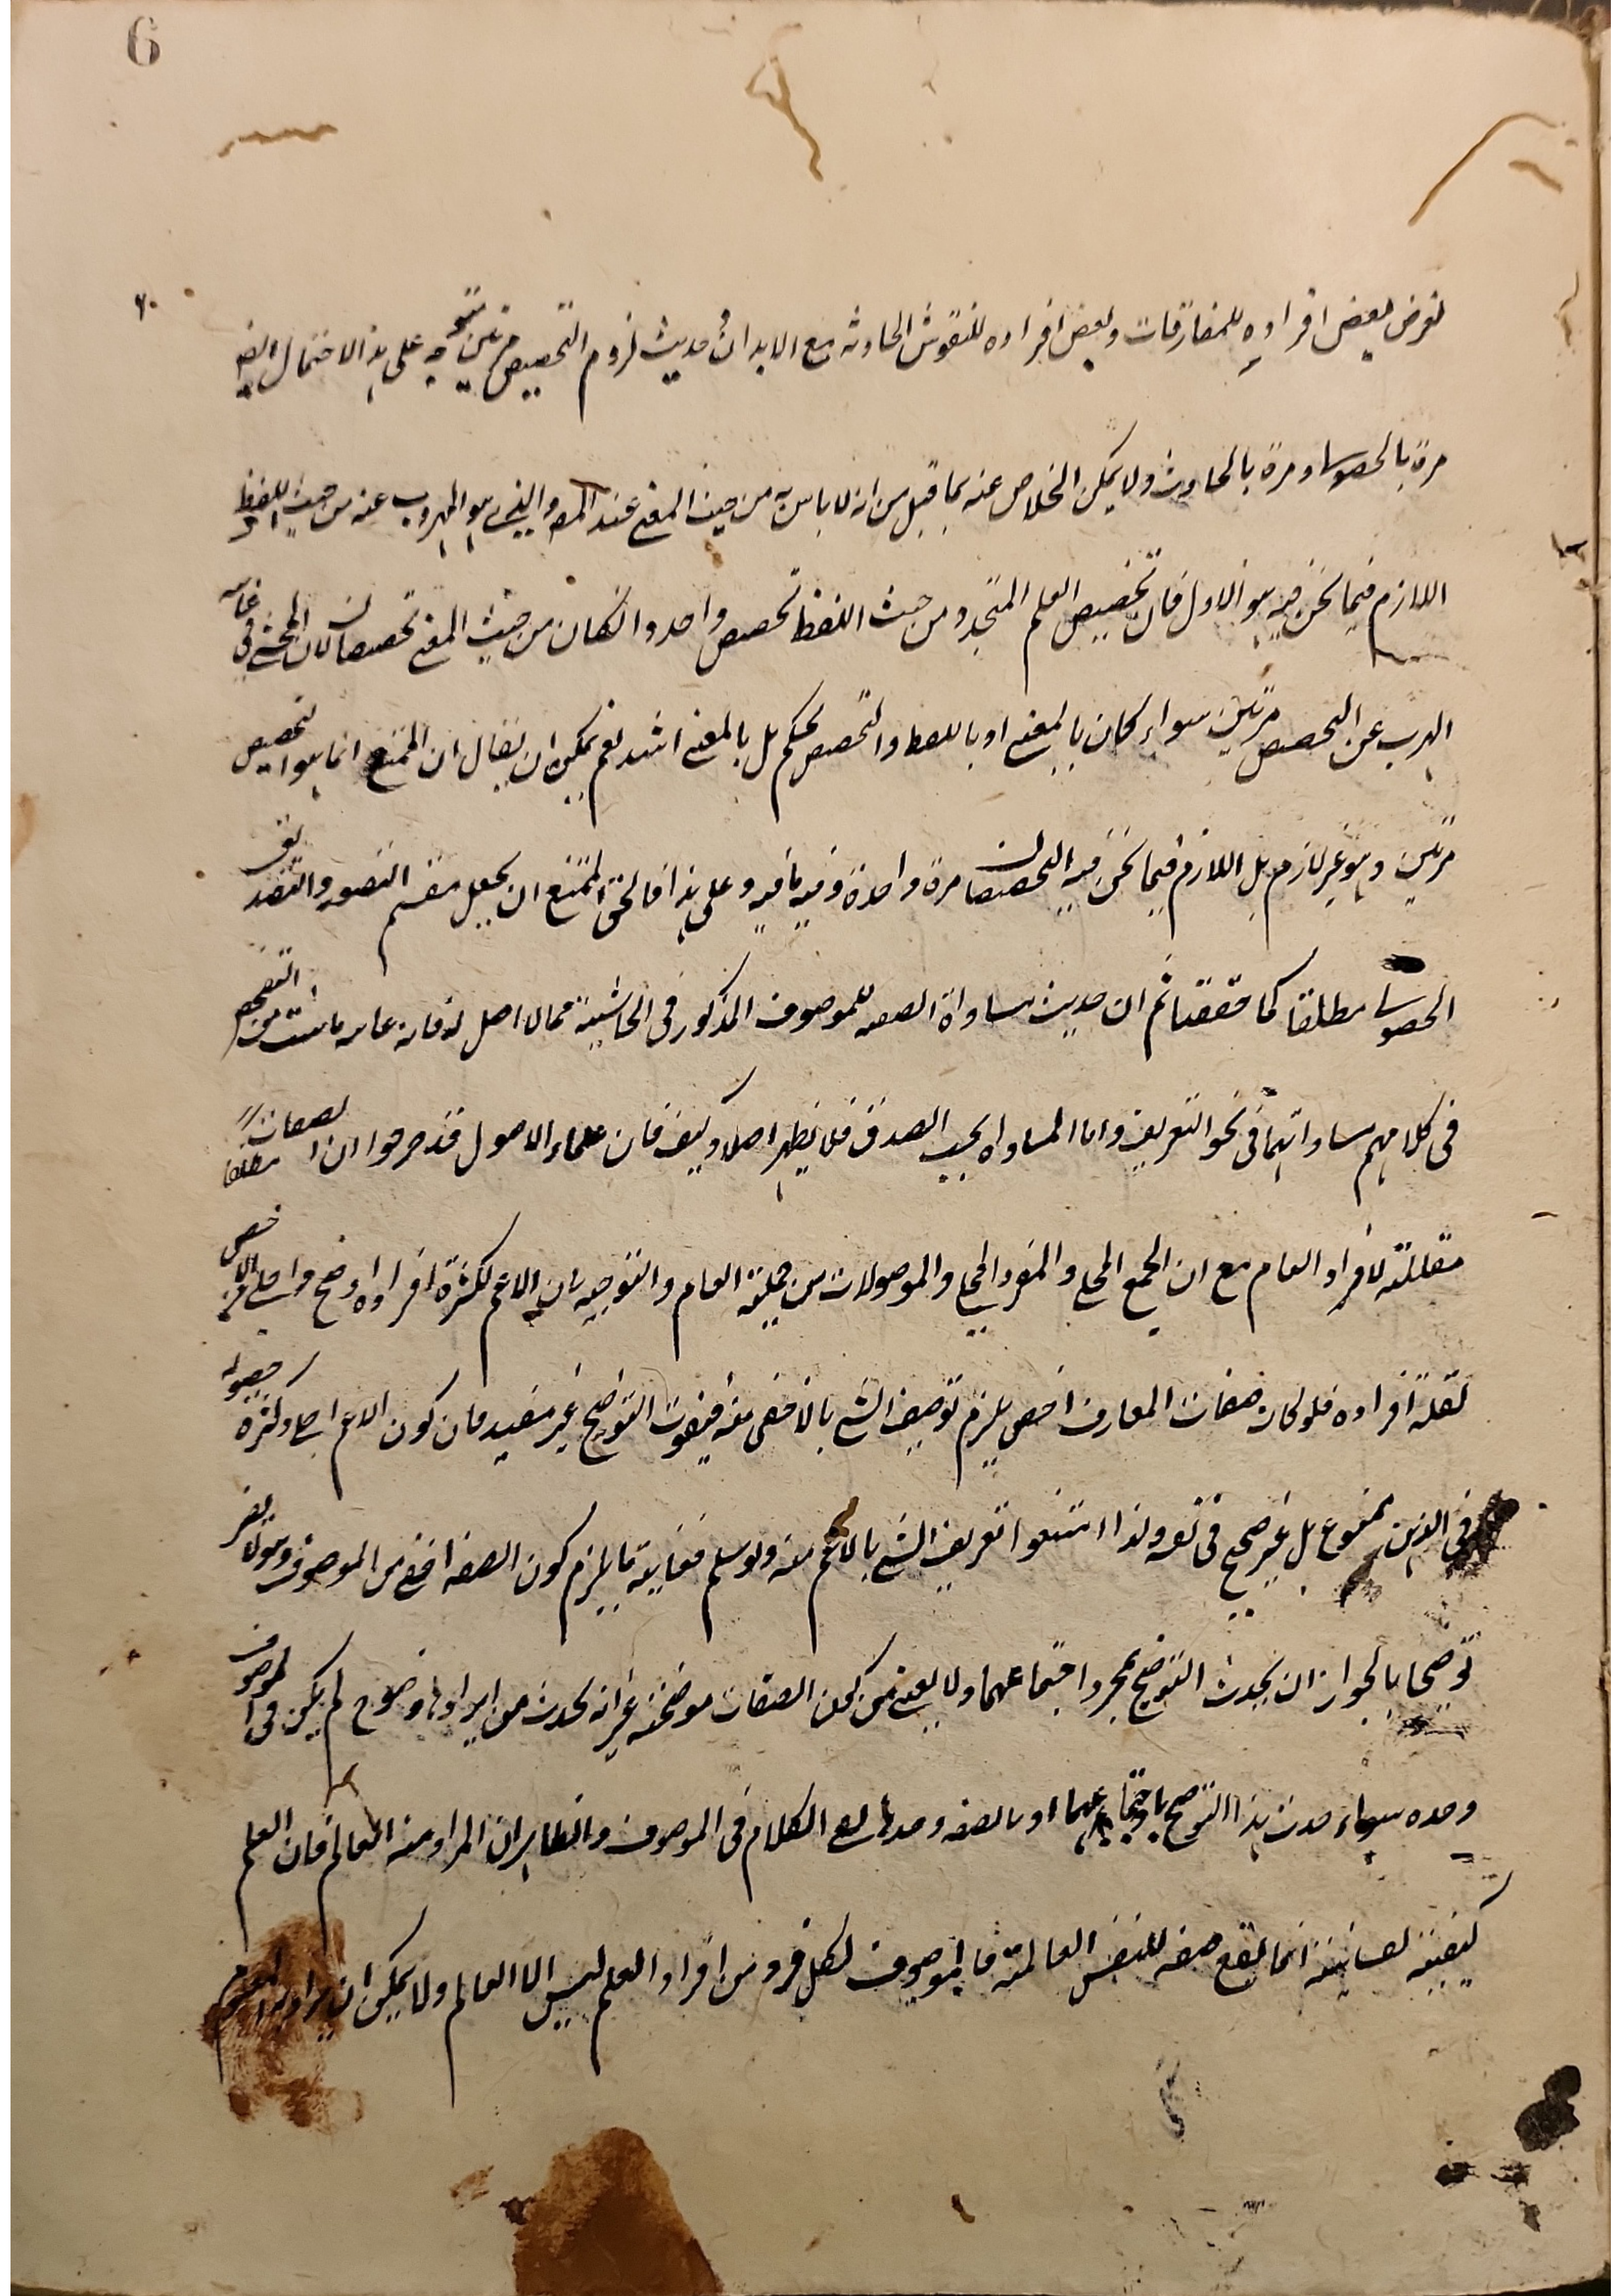 6
٦٠
لعرض بعض افراده للمفارقات وبعض افراده للنفوس الحادثه مع الابدان حديث لزوم التخصيص مرتين متوجه على هذا الاحتمال ايضا
مرة بالحصولى ومرة بالحادث ولا يمكن الخلاص عنه بما قيل من انه لا باس به من حيث المعنى عند المص والذى هو المهروب عنه من حيث اللفظ
اللازم فيما نحن فيه هو الاول فان تخصيص العلم المتجدد من حيث اللفظ تخصيص واحد وان كان من حيث المعنى تخصيصان لان المحشى فى غاية
الهرب عن التخصيص مرتين سواء كان بالمعنى او باللفظ والتخصيص تحكم بل بالمعنى اشد نعم يمكن ان يقال ان الممتنع انما هو التخصيص
مرتين وهو غير لازم بل اللازم فيما نحن فيه التخصيصان مرة واحدة وفيه ما فيه وعلى هذا فالحق الممتنع ان يجعل مقسم التصور والتصديق
الحصولى مطلقا كما حققنا ثم ان حديث مساواة الصفه للموصوف المذكور فى الحاشية مما لا اصل له فان غايه ما ثبت من التفحص
فى كلامهم مساواتهما فى نحو التعريف واما المساواة بحسب الصدق فلا يظهر اصلا وكيف فان علماء الاصول قد صرحوا ان الصفات مطلقا
مقللة لافراد العام مع ان الجمع المحلى والمفرد المحلى والموصولات من جملة العام والتوجيه بان الاعم لكثرة افراده اوضح واجلى من الاخص
لقلة افراده فلو كان صفات المعارف اخص يلزم توصيف الشى بالاخفى منه فيفوت التوضيح غير مفيد فان كون الاعم اجلى وكثرة حصوله
فى الذهن ممنوع بل غير صحيح فى نفسه ولذا امتنعوا تعريف الشى بالاعم منه ولو سلم فغاية ما يلزم كون الصفه اخفى من الموصوف وهو لا يضر
توضيحها بالجواز ان يحدث التوضيح بمجرد اجتماعهما ولا يعنى من كون الصفات موضحة غير انه يحدث من ايرادها وضوح لم يكن فى الموصوف
وحده سواء حدث هذا التوضيح باجتماعهما او بالصفه وحدها بقى الكلام فى الموصوف والظاهر ان المراد منه العالم فان العلم
كيفية نفسانية انما تقع صفه للنفس العالمة فالموصوف لكل فرد من افراد العلم ليس الا العالم ولا يمكن ان يراد به المعلوم